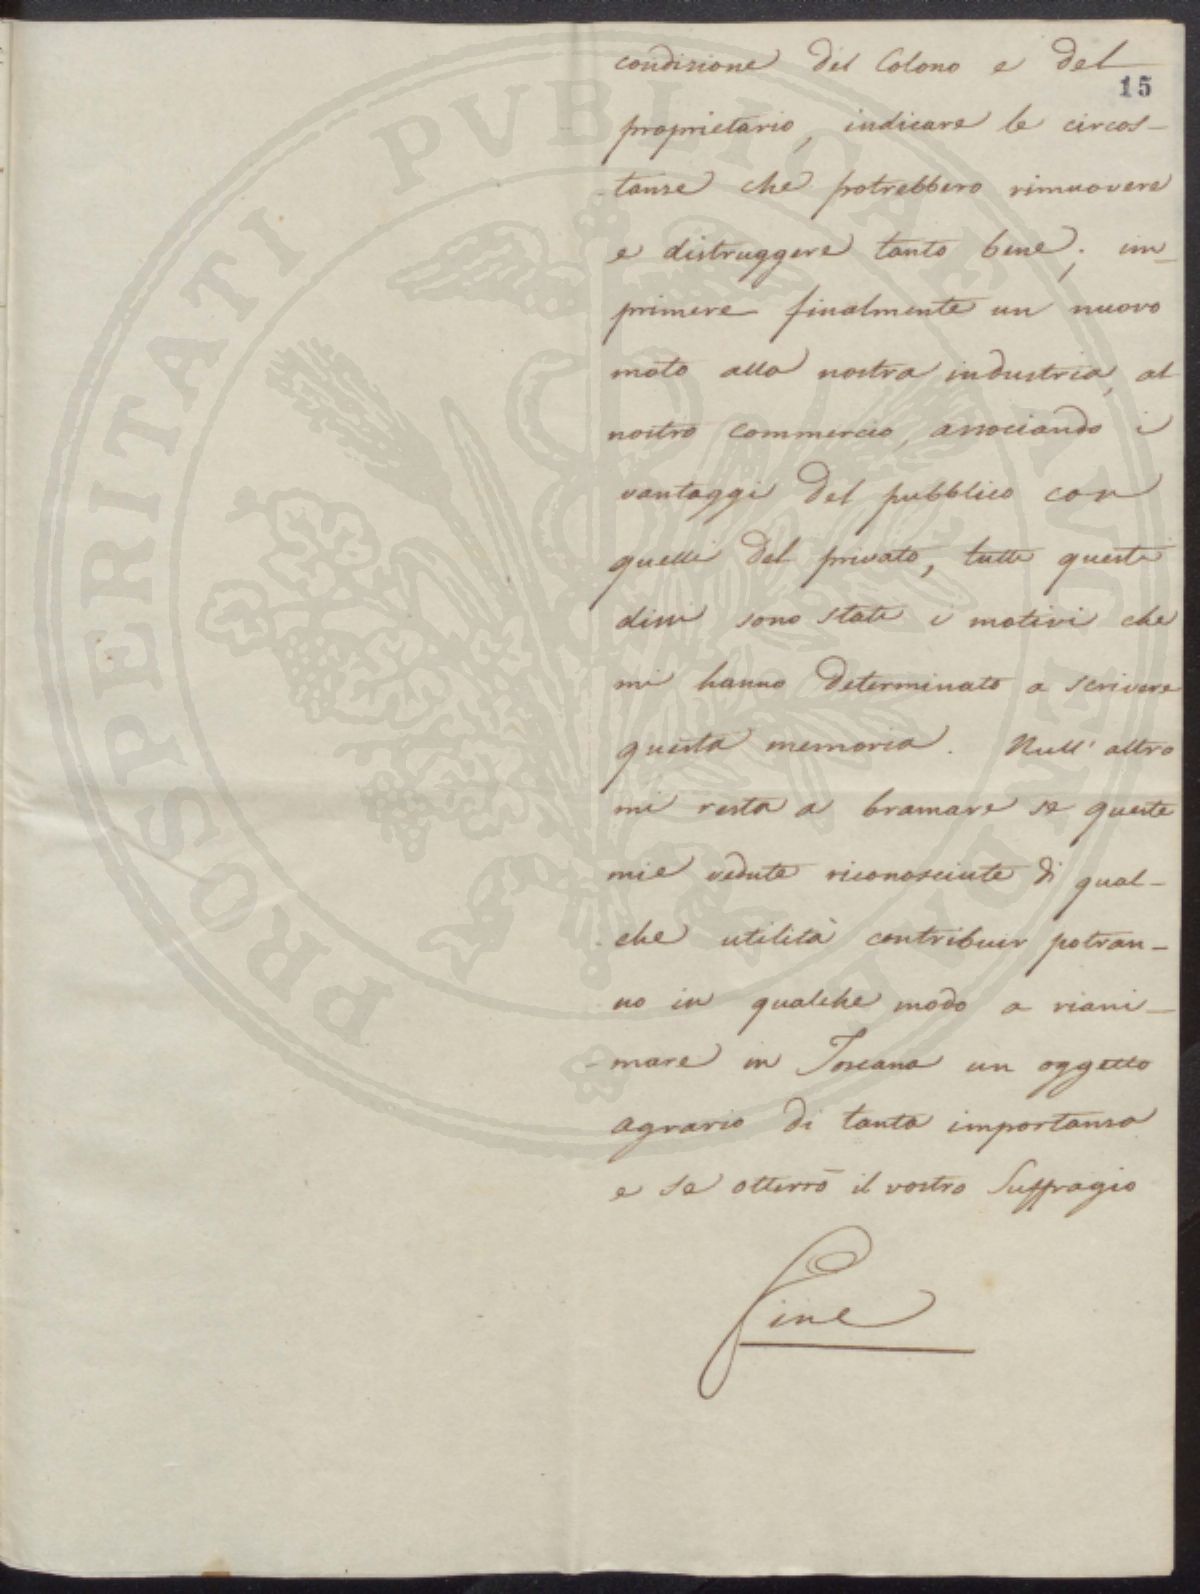 condizione del Colono e del
15
proprietario, indicare le circos-
tanze che potrebbero rimuovere
e distruggere tanto bene; im-
primere finalmente un nuovo
moto alla nostra industria, al
nostro commercio, associando i
vantaggi del pubblico con
quelli del privato, tutti questi
dissi sono stati i motivi che
mi hanno determinato a scrivere
questa memoria. Null' altro
mi resta a bramare se queste
mie vedute riconosciute di qual-
che utilità contribuir potran-
no in qualche modo a riani-
mare in Toscana un oggetto
agrario di tanta importanza
e se otterrò il vostro Suffragio
Fine
PROSPERITATI PVBLICAE AVGENDAE